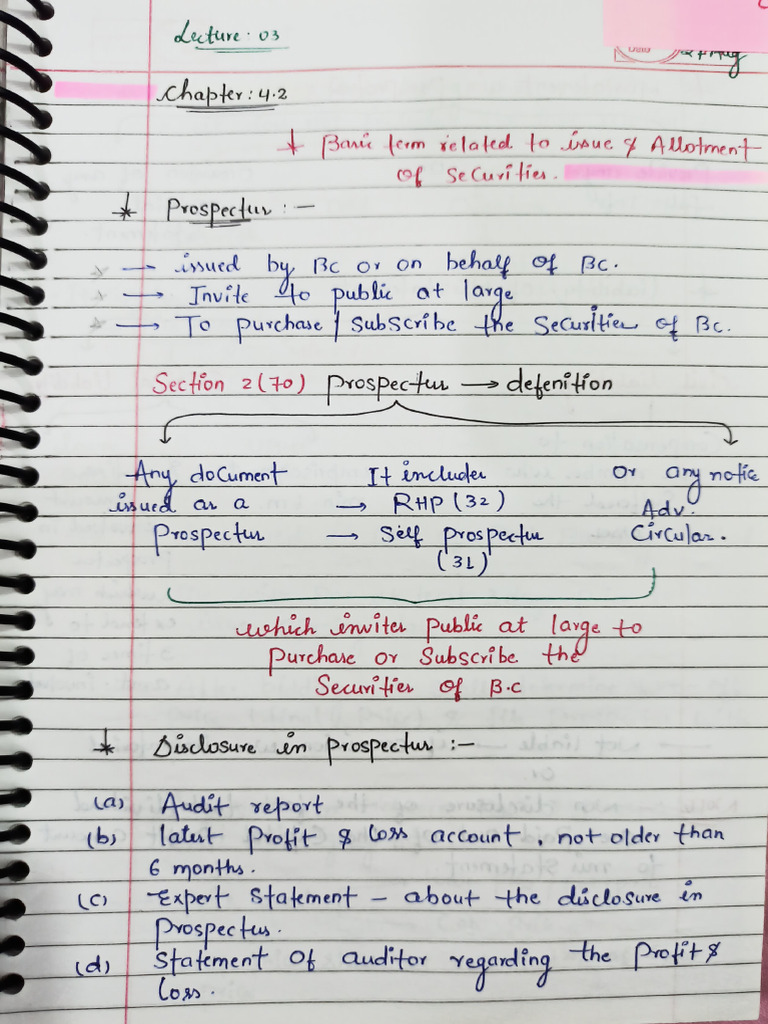 Lecture : 03
Chapter : 4.2
↓ Basic term related to issue & Allotment
of Securities.
Prospectus : —
— issued by BC or on behalf of BC.
→ Invite to public at large
→ To purchase / subscribe the Securities of BC.
Section 2(70) Prospectus → defenition
Any document It includes or any notice
issued as a → RHP (32) Adv.
Prospectus → Self prospectus Circular.
(31)
which invites public at large to
Purchase or Subscribe the
Securities of B.C
Disclosure in prospectus : —
(a) Audit report
(b) latest Profit & loss account, not older than
6 months.
(c) Expert Statement – about the disclosure in
Prospectus.
(d) Statement of auditor regarding the Profit &
loss.